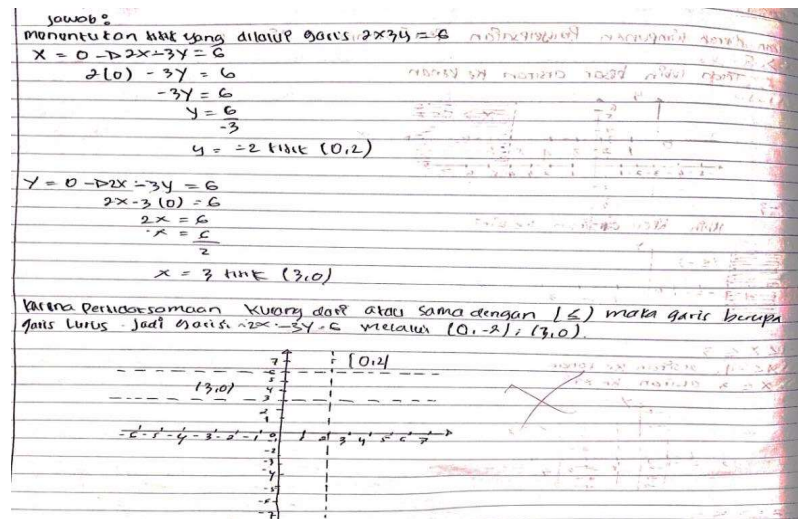 Jawab:
Menentukan titik yang dilalui garis 2x3y = 6
X = 0 → 2x-3y = 6
2(0) - 3y = 6
-3y = 6
y = 6
-3
y = -2 titik (0,2)
Y = 0 → 2x - 3y = 6
2x - 3(0) = 6
2x = 6
x = 6
2
x = 3 titik (3,0)
karena pertidaksamaan kurang dari atau sama dengan (≤) maka garis berupa
garis lurus. Jadi garis 2x - 3y = 6 melalui (0,-2); (3,0).
7
(0,2)
6
5
(3,0)
4
3
2
1
-6 -5 -4 -3 -2 -1 0 1 2 3 4 5 6 7
-2
-3
-4
-5
-6
-7